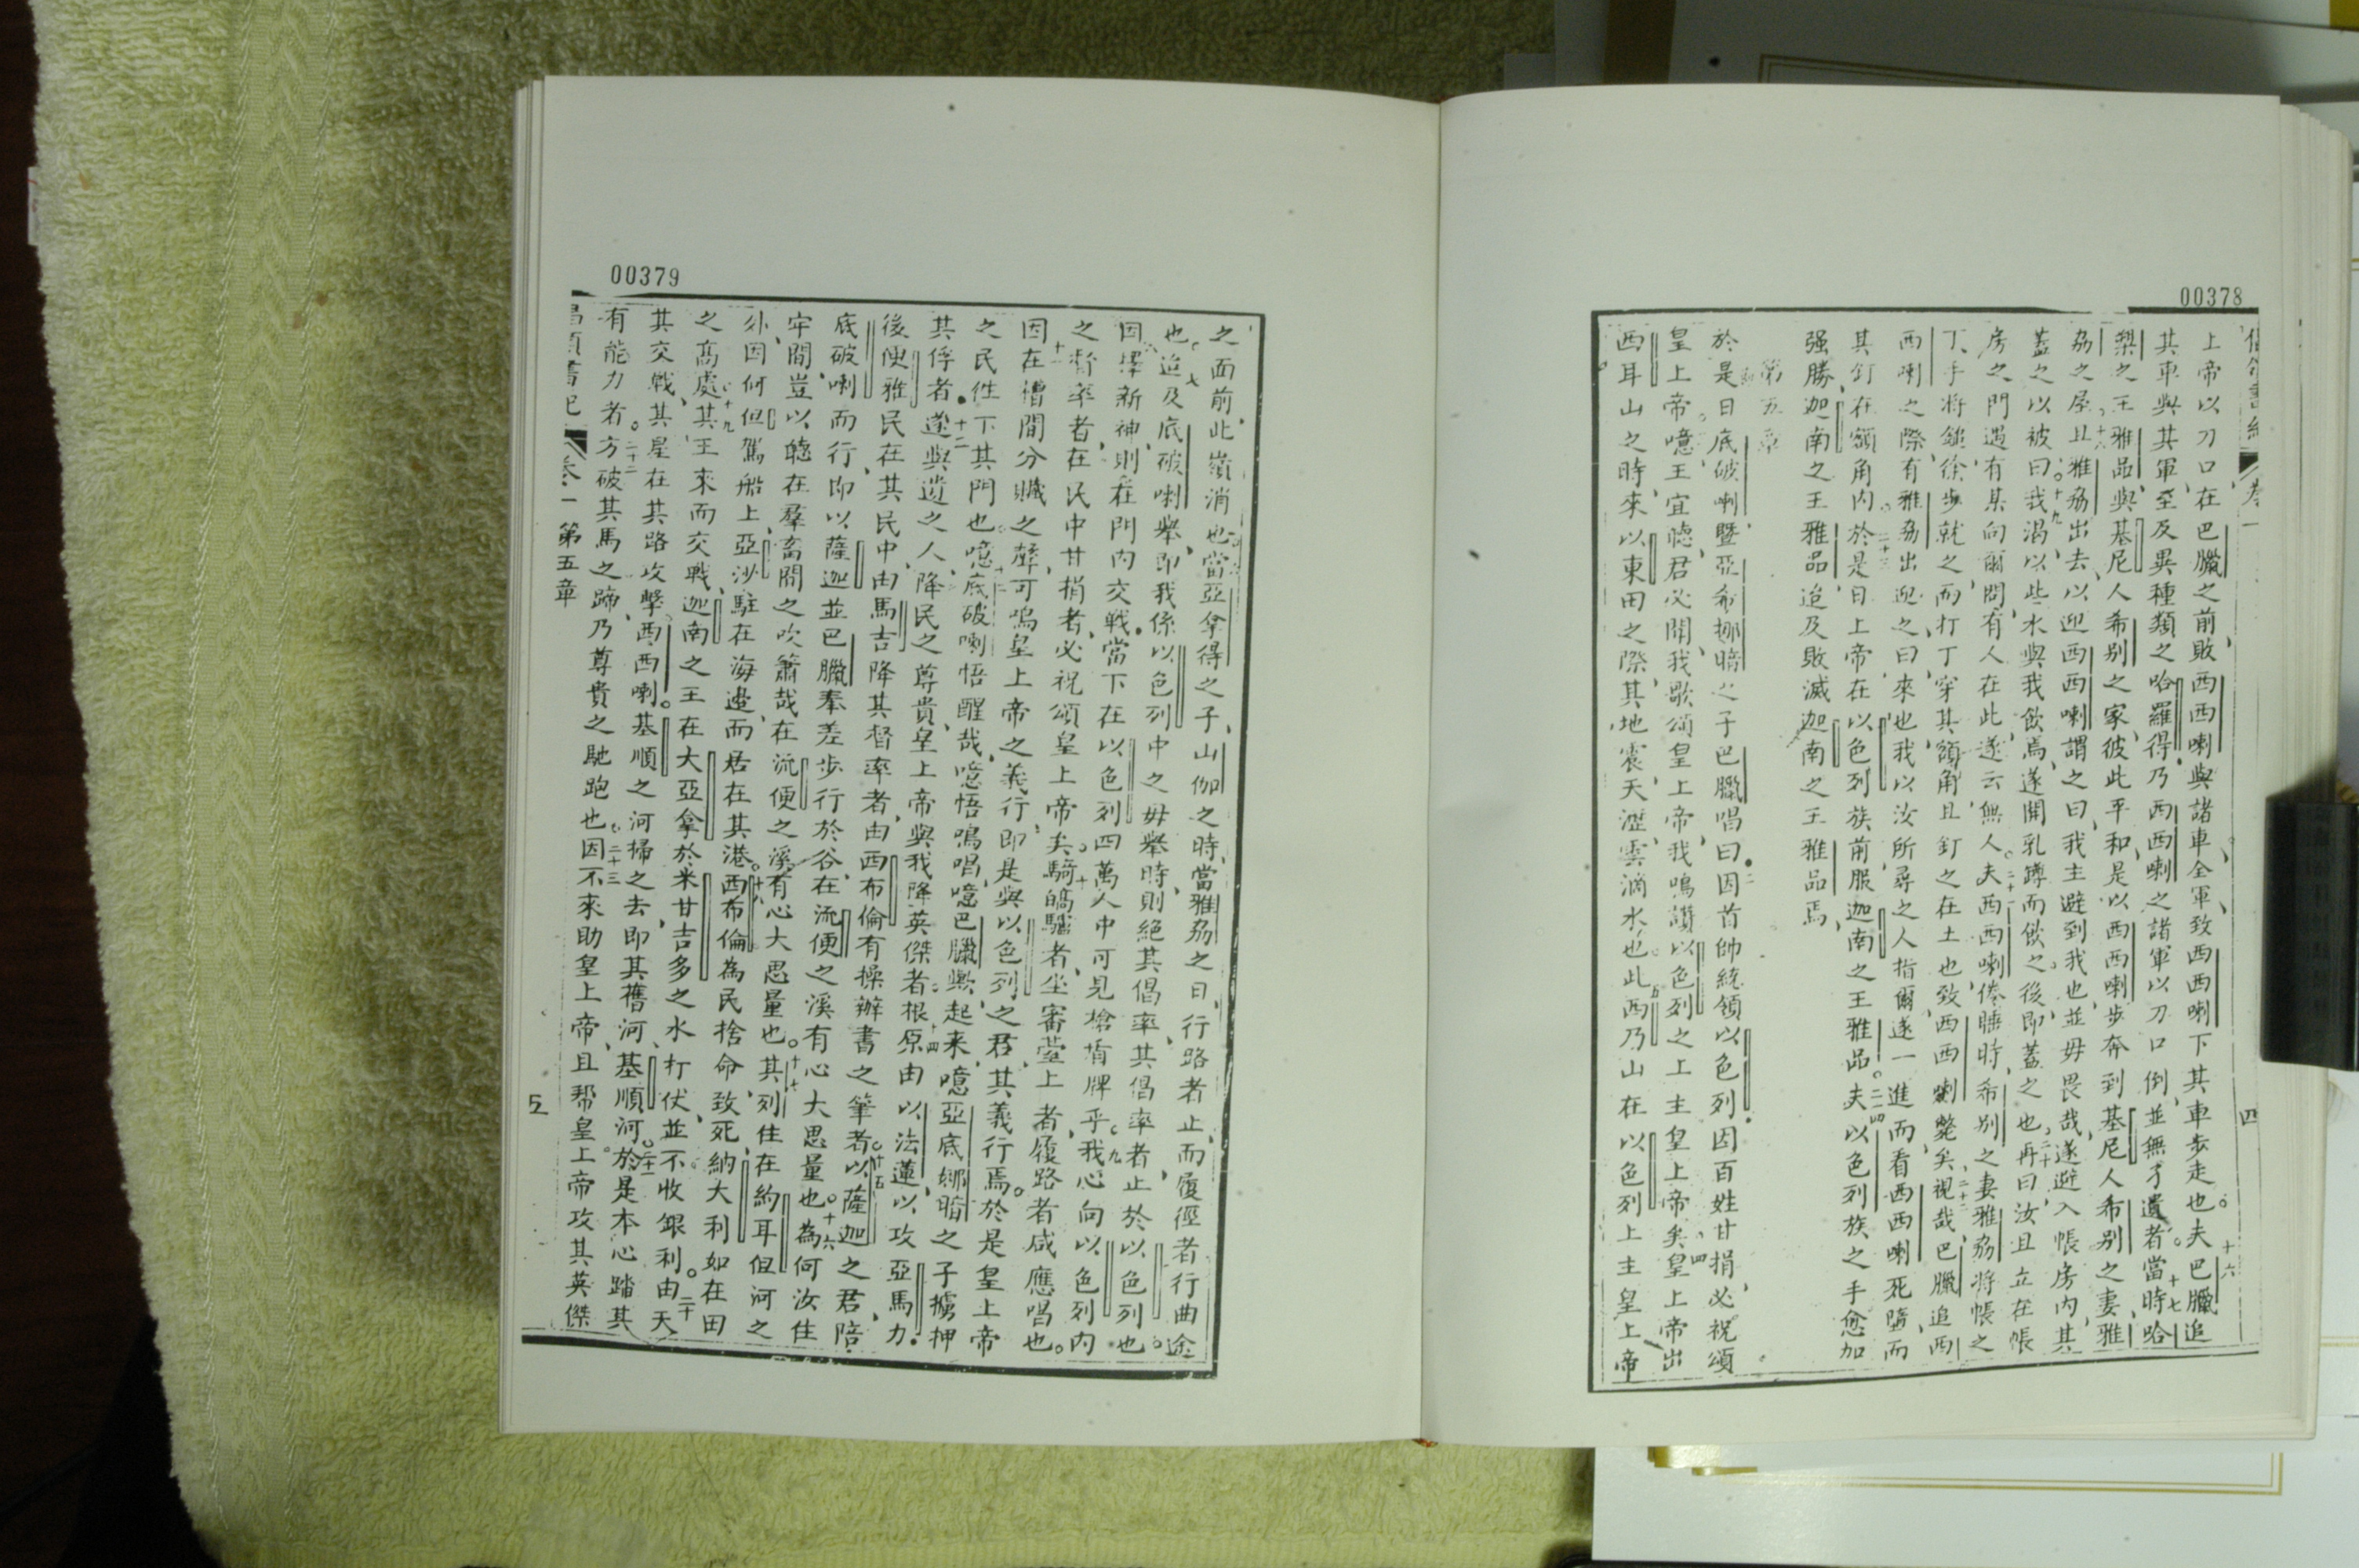 00378
上帝以刀口在巴臘之前敗西西喇與諸車全軍致西西喇下其車步走也十六夫巴臘追
其車與其軍至及異種類之哈羅得乃西西喇之諸軍以刀口倒並無才遺者十七當時哈
梨之王雅品與基尼人希别之家彼此平和是以西西喇步奔到基尼人希别之妻雅
劦之屋且十八雅劦出去以迎西西喇謂之曰我主避到我也並毋畏哉遂避入帳房内其
蓋之以被十九曰我渴以些水與我飲焉遂開乳罇而飲之後即蓋之也二十再曰汝且立在帳
房之門遇有某向爾問有人在此遂云無人二十一夫西西喇倦睡時希别之妻雅劦將帳之
丁手將鎚徐步就之而打丁穿其額角且釘之在土也致西西喇斃矣二十二視哉巴臘追西
西喇之際有雅劦出迎之曰來也我以汝所尋之人指爾遂一進而看西西喇死墮而
其釘在額角内二十三於是日上帝在以色列族前服迦南之王雅品二十四夫以色列族之手愈加
强勝迦南之王雅品迨及敗滅迦南之王雅品焉
第五章
於是日底破喇暨亞希挪暗之子巴臘唱曰二因首帥統領以色列因百姓甘捐必祝頌
皇上帝噫王宜聽君必聞我歌頌皇上帝我鳴讚以色列之上主皇上帝矣四皇上帝出
西耳山之時來以東田之際其地震天瀝雲滴水也五此西乃山在以色列上主皇上帝
四
00379
之面前此嶺消也六當亞拿得之子山伽之時當雅劦之日行路者止而履徑者行曲途
也七迨及底破喇舉即我係以色列中之母舉時則絶其倡率其倡率者止於以色列也
八因擇新神則在門内交戰當下在以色列四萬人中可見槍盾牌乎九我心向以色列内
之督率者在民中甘捐者必祝頌皇上帝矣十騎皜驢者坐審臺上者履路者咸應唱也
十一因在槽間分贓之聲可嗚皇上帝之義行即是與以色列之君其義行焉於是皇上帝
之民徃下其門也十二噫底破喇悟醒哉噫悟鳴唱噫巴臘歟起来噫亞底娜暗之子擄押
其俘者十三遂與遺之人降民之尊貴皇上帝與我降英傑者十四根原由以法蓮以攻亞馬力
後便雅民在其民中由馬吉降其督率者由西布倫有操辦書之筆者十五以薩迦之君陪
底破喇而行即以薩迦並巴臘奉差步行於谷在流便之溪有心大思量也十六為何汝住
牢間豈以聽在羣畜間之吹簫哉在流便之溪有心大思量也十七其列住在約耳但河之
外因何但駕船上亞沙駐在海邊而居在其港十八西布倫為民捨命致死納大利如在田
之高處十九其王來而交戰迦南之王在大亞拿於米甘吉多之水打伏並不收銀利二十由天
其交戰其星在其路攻擊西西喇二十一基順之河掃之去即其舊河基順河於是本心踏其
有能力者二十二方破其馬之蹄乃尊貴之馳跑也二十三因不來助皇上帝且帮皇上帝攻其英傑
卷一 第五章
五